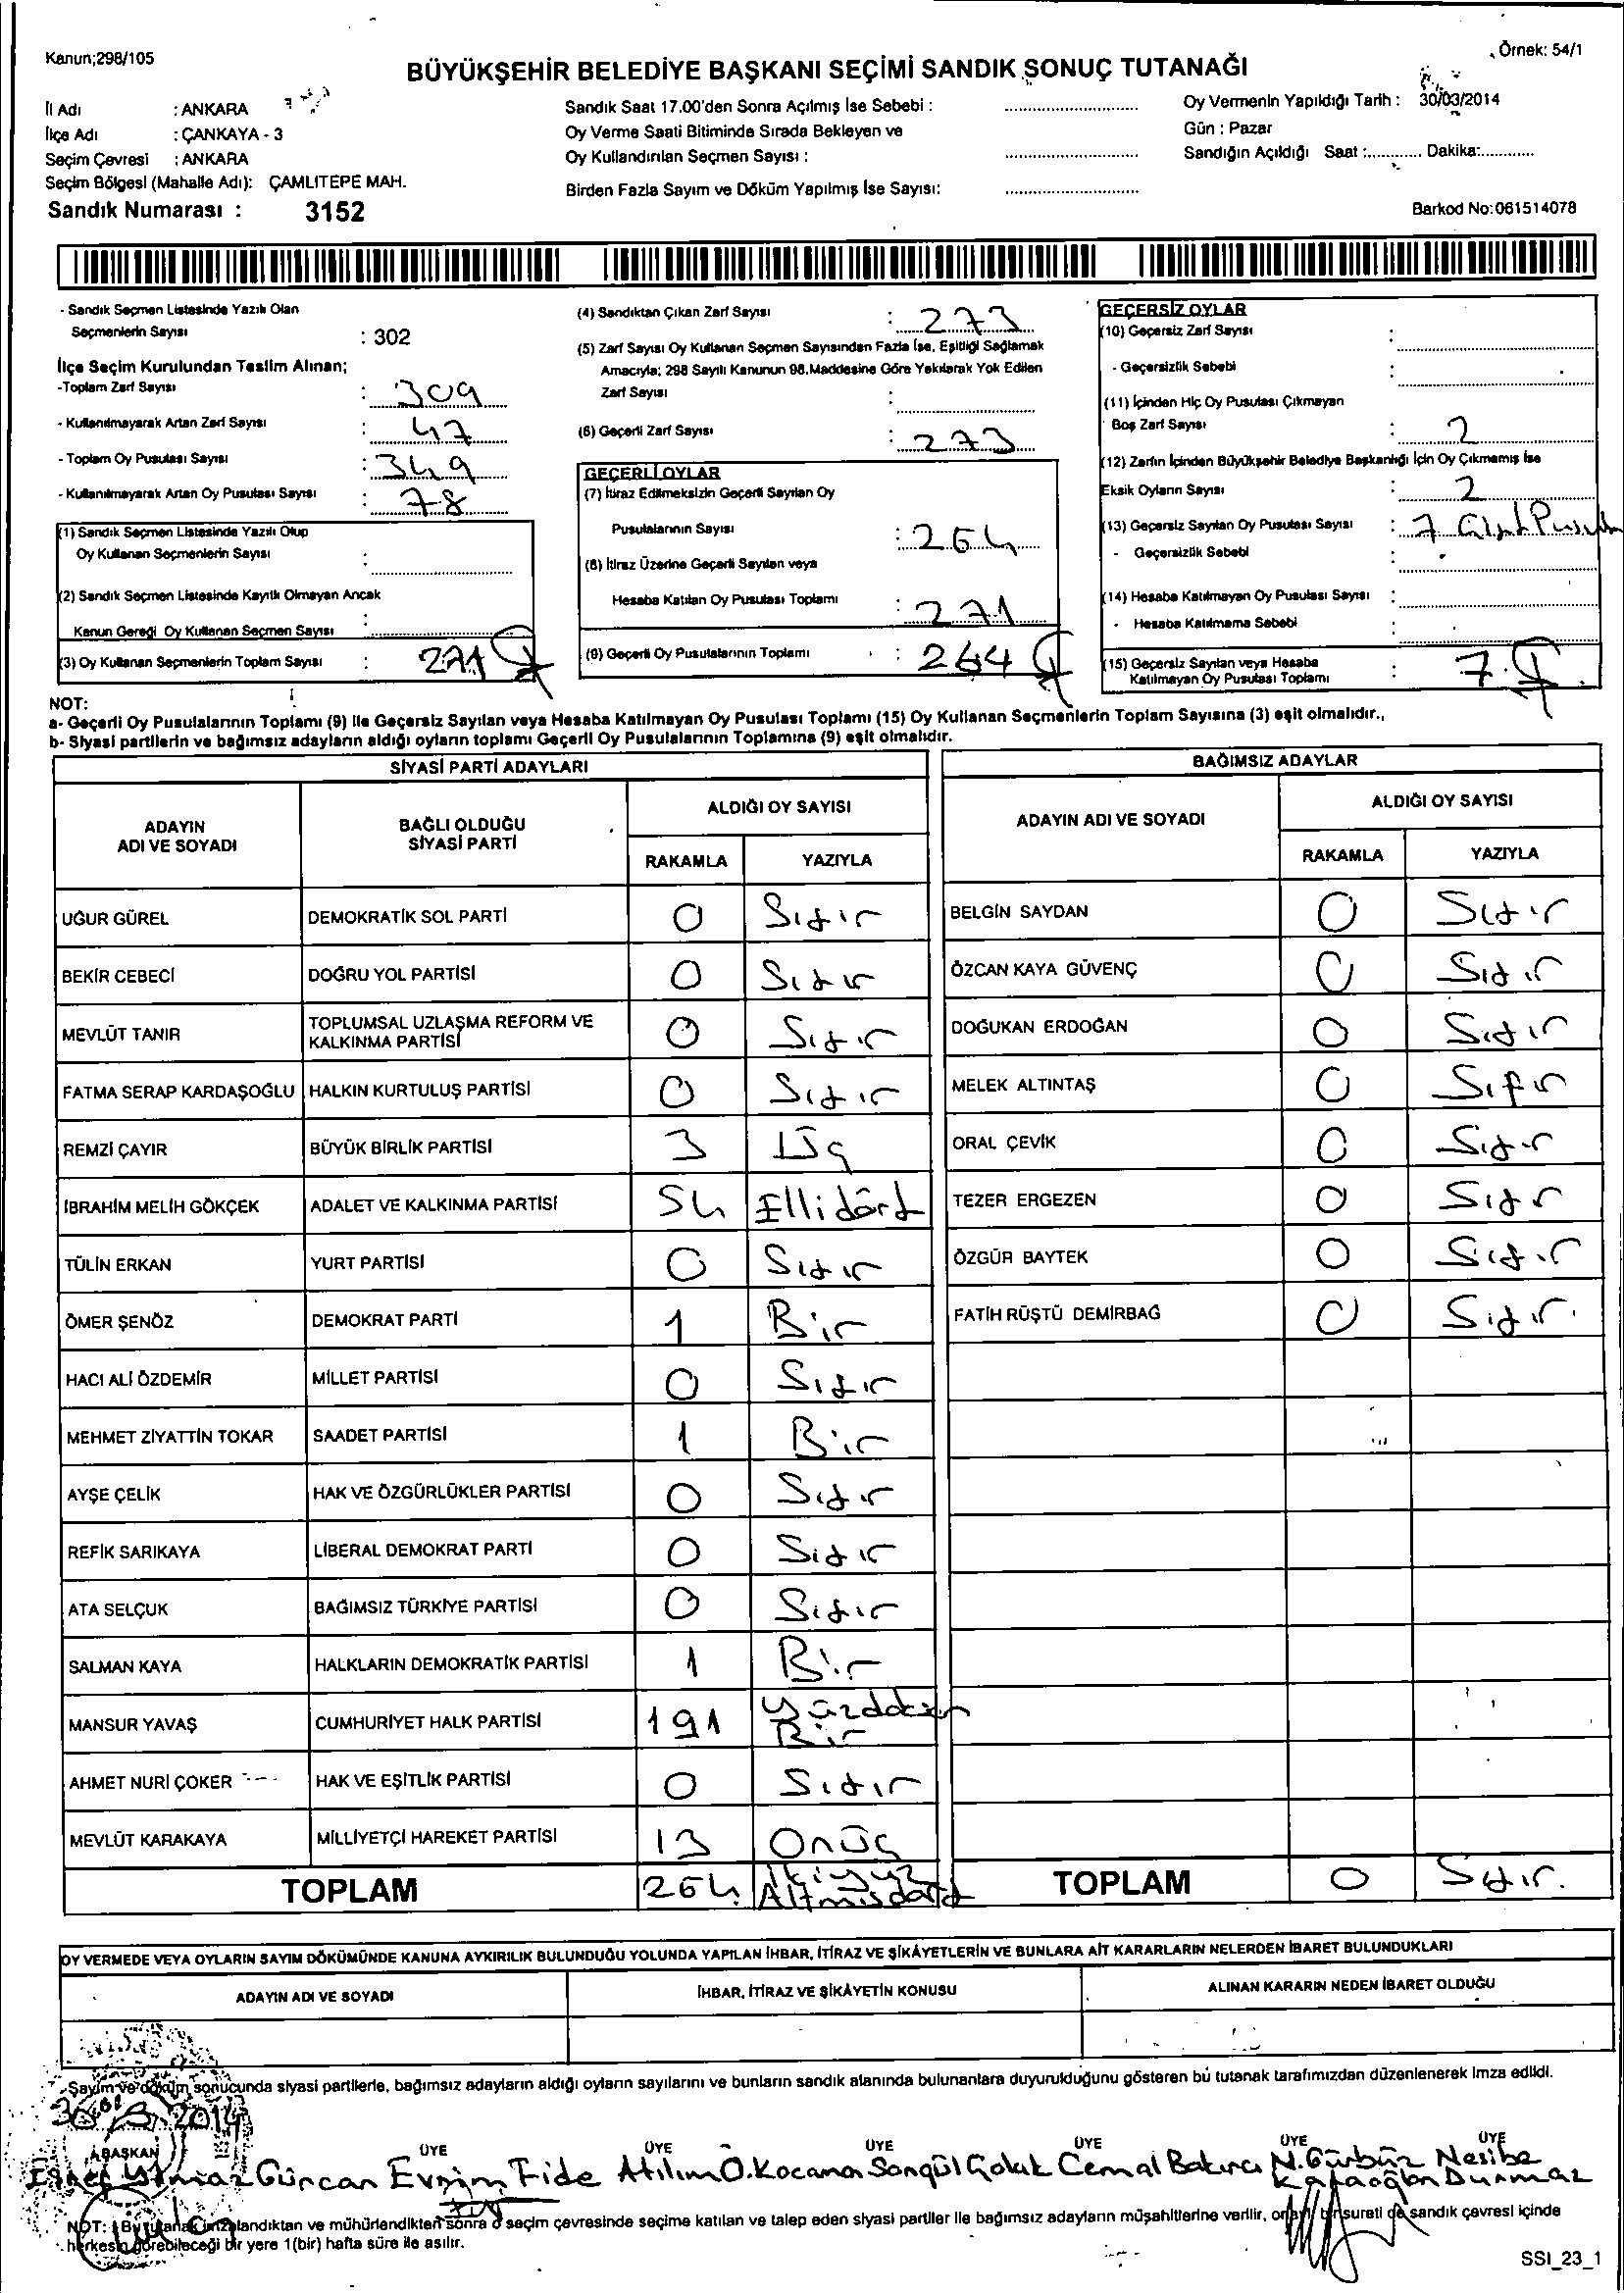 Kanun;298/105
Örnek: 54/1
BÜYÜKŞEHİR BELEDİYE BAŞKANI SEÇİMİ SANDIK SONUÇ TUTANAĞI
İl Adı : ANKARA
İlçe Adı : ÇANKAYA - 3
Seçim Çevresi : ANKARA
Seçim Bölgesi (Mahalle Adı): ÇAMLITEPE MAH.
Sandık Numarası : 3152
Sandık Saat 17.00'den Sonra Açılmış İse Sebebi :
Oy Verme Saati Bitiminde Sırada Bekleyen ve
Oy Kullandırılan Seçmen Sayısı :
Birden Fazla Sayım ve Döküm Yapılmış İse Sayısı:
Oy Vermenin Yapıldığı Tarih : 30/03/2014
Gün : Pazar
Sandığın Açıldığı Saat :............ Dakika:............
Barkod No:061514078
- Sandık Seçmen Listesinde Yazılı Olan
Seçmenlerin Sayısı : 302
İlçe Seçim Kurulundan Teslim Alınan;
-Toplam Zarf Sayısı : 309
- Kullanılmayarak Artan Zarf Sayısı : 47
- Toplam Oy Pusulası Sayısı : 349
- Kullanılmayarak Artan Oy Pusulası Sayısı : 78
(1) Sandık Seçmen Listesinde Yazılı Olup
Oy Kullanan Seçmenlerin Sayısı :
(2) Sandık Seçmen Listesinde Kayıtlı Olmayan Ancak
Kanun Gereği Oy Kullanan Seçmen Sayısı :
(3) Oy Kullanan Seçmenlerin Toplam Sayısı : 271
(4) Sandıktan Çıkan Zarf Sayısı : 273
(5) Zarf Sayısı Oy Kullanan Seçmen Sayısından Fazla İse, Eşitliği Sağlamak
Amacıyla; 298 Sayılı Kanunun 98.Maddesine Göre Yakılarak Yok Edilen
Zarf Sayısı :
(6) Geçerli Zarf Sayısı : 273
GEÇERLİ OYLAR
(7) İtiraz Edilmeksizin Geçerli Sayılan Oy
Pusulalarının Sayısı : 264
(8) İtiraz Üzerine Geçerli Sayılan veya
Hesaba Katılan Oy Pusulası Toplamı : 271
(9) Geçerli Oy Pusulalarının Toplamı : 264
GEÇERSİZ OYLAR
(10) Geçersiz Zarf Sayısı :
- Geçersizlik Sebebi :
(11) İçinden Hiç Oy Pusulası Çıkmayan
Boş Zarf Sayısı : 2
(12) Zarfın İçinden Büyükşehir Belediye Başkanlığı İçin Oy Çıkmamış İse
Eksik Oyların Sayısı : 2
(13) Geçersiz Sayılan Oy Pusulası Sayısı : 7
- Geçersizlik Sebebi :
(14) Hesaba Katılmayan Oy Pusulası Sayısı :
- Hesaba Katılmama Sebebi :
(15) Geçersiz Sayılan veya Hesaba
Katılmayan Oy Pusulası Toplamı : 7
NOT:
a- Geçerli Oy Pusulalarının Toplamı (9) ile Geçersiz Sayılan veya Hesaba Katılmayan Oy Pusulası Toplamı (15) Oy Kullanan Seçmenlerin Toplam Sayısına (3) eşit olmalıdır.,
b- Siyasi partilerin ve bağımsız adayların aldığı oyların toplamı Geçerli Oy Pusulalarının Toplamına (9) eşit olmalıdır.
SİYASİ PARTİ ADAYLARI
ADAYIN ADI VE SOYADI
BAĞLI OLDUĞU SİYASİ PARTİ
ALDIĞI OY SAYISI
RAKAMLA YAZIYLA
UĞUR GÜREL DEMOKRATİK SOL PARTİ 0 Sıfır
BEKİR CEBECİ DOĞRU YOL PARTİSİ 0 Sıfır
MEVLÜT TANIR TOPLUMSAL UZLAŞMA REFORM VE KALKINMA PARTİSİ 0 Sıfır
FATMA SERAP KARDAŞOĞLU HALKIN KURTULUŞ PARTİSİ 0 Sıfır
REMZİ ÇAYIR BÜYÜK BİRLİK PARTİSİ 3 Üç
İBRAHİM MELİH GÖKÇEK ADALET VE KALKINMA PARTİSİ 54 Ellidört
TÜLİN ERKAN YURT PARTİSİ 0 Sıfır
ÖMER ŞENÖZ DEMOKRAT PARTİ 1 Bir
HACI ALİ ÖZDEMİR MİLLET PARTİSİ 0 Sıfır
MEHMET ZİYATTİN TOKAR SAADET PARTİSİ 1 Bir
AYŞE ÇELİK HAK VE ÖZGÜRLÜKLER PARTİSİ 0 Sıfır
REFİK SARIKAYA LİBERAL DEMOKRAT PARTİ 0 Sıfır
ATA SELÇUK BAĞIMSIZ TÜRKİYE PARTİSİ 0 Sıfır
SALMAN KAYA HALKLARIN DEMOKRATİK PARTİSİ 1 Bir
MANSUR YAVAŞ CUMHURİYET HALK PARTİSİ 191 Bir
AHMET NURİ ÇOKER HAK VE EŞİTLİK PARTİSİ 0 Sıfır
MEVLÜT KARAKAYA MİLLİYETÇİ HAREKET PARTİSİ 13 Onüç
TOPLAM 264 İkiyüz Altmışdört
BAĞIMSIZ ADAYLAR
ADAYIN ADI VE SOYADI
ALDIĞI OY SAYISI
RAKAMLA YAZIYLA
BELGİN SAYDAN 0 Sıfır
ÖZCAN KAYA GÜVENÇ 0 Sıfır
DOĞUKAN ERDOĞAN 0 Sıfır
MELEK ALTINTAŞ 0 Sıfır
ORAL ÇEVİK 0 Sıfır
TEZER ERGEZEN 0 Sıfır
ÖZGÜR BAYTEK 0 Sıfır
FATİH RÜŞTÜ DEMİRBAĞ 0 Sıfır.
TOPLAM 0 Sıfır.
OY VERMEDE VEYA OYLARIN SAYIM DÖKÜMÜNDE KANUNA AYKIRILIK BULUNDUĞU YOLUNDA YAPILAN İHBAR, İTİRAZ VE ŞİKÂYETLERİN VE BUNLARA AİT KARARLARIN NELERDEN İBARET BULUNDUKLARI
ADAYIN ADI VE SOYADI İHBAR, İTİRAZ VE ŞİKÂYETİN KONUSU ALINAN KARARIN NEDEN İBARET OLDUĞU
-Sayım ve döküm sonucunda siyasi partilerle, bağımsız adayların aldığı oyların sayılarını ve bunların sandık alanında bulunanlara duyurulduğunu gösteren bu tutanak tarafımızdan düzenlenerek imza edildi.
2014
BAŞKAN ÜYE ÜYE ÜYE ÜYE ÜYE ÜYE
Gürcan Evrim Fide Atılım Ö.Kocaman Songül Çolak Cemal Bakırcı N.Gürbüz Nesibe
Karaoğlan Durmaz
NOT: Bu tutanak imzalandıktan ve mühürlendikten sonra o seçim çevresinde seçime katılan ve talep eden siyasi partiler ile bağımsız adayların müşahitlerine verilir, onaylı bir sureti de sandık çevresi içinde
herkesin görebileceği bir yere 1(bir) hafta süre ile asılır.
SSI_23_1